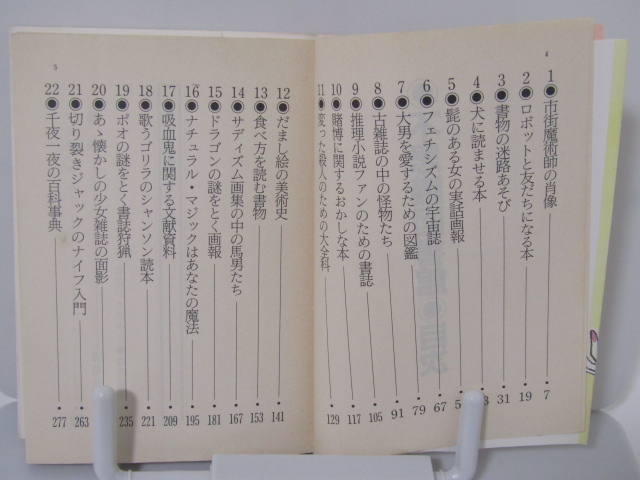 4
1●市街魔術師の肖像 7
2●ロボットと友だちになる本 19
3●書物の迷路あそび 31
4●犬に読ませる本 3
5●髭のある女の実話画報 5
6●フェチシズムの宇宙誌 67
7●大男を愛するための図鑑 79
8●古雑誌の中の怪物たち 91
9●推理小説ファンのための書誌 105
10●賭博に関するおかしな本 117
11●変った殺人のための大全科 129
5
12●だまし絵の美術史 141
13●食べ方を読む書物 153
14●サディズム画集の中の馬男たち 167
15●ドラゴンの謎をとく画報 181
16●ナチュラル・マジックはあなたの魔法 195
17●吸血鬼に関する文献資料 209
18●歌うゴリラのシャンソン読本 221
19●ポオの謎をとく書誌狩猟 235
20●あゝ懐かしの少女雑誌の面影
21●切り裂きジャックのナイフ入門 263
22●千夜一夜の百科事典 277